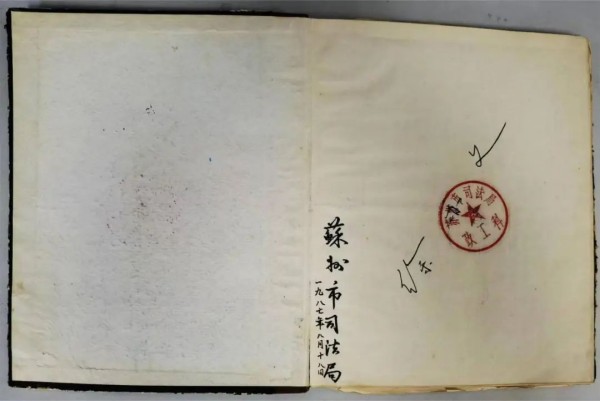 蘇州市司法局
一九八七年八月十八日
苏州市司法局
政工科